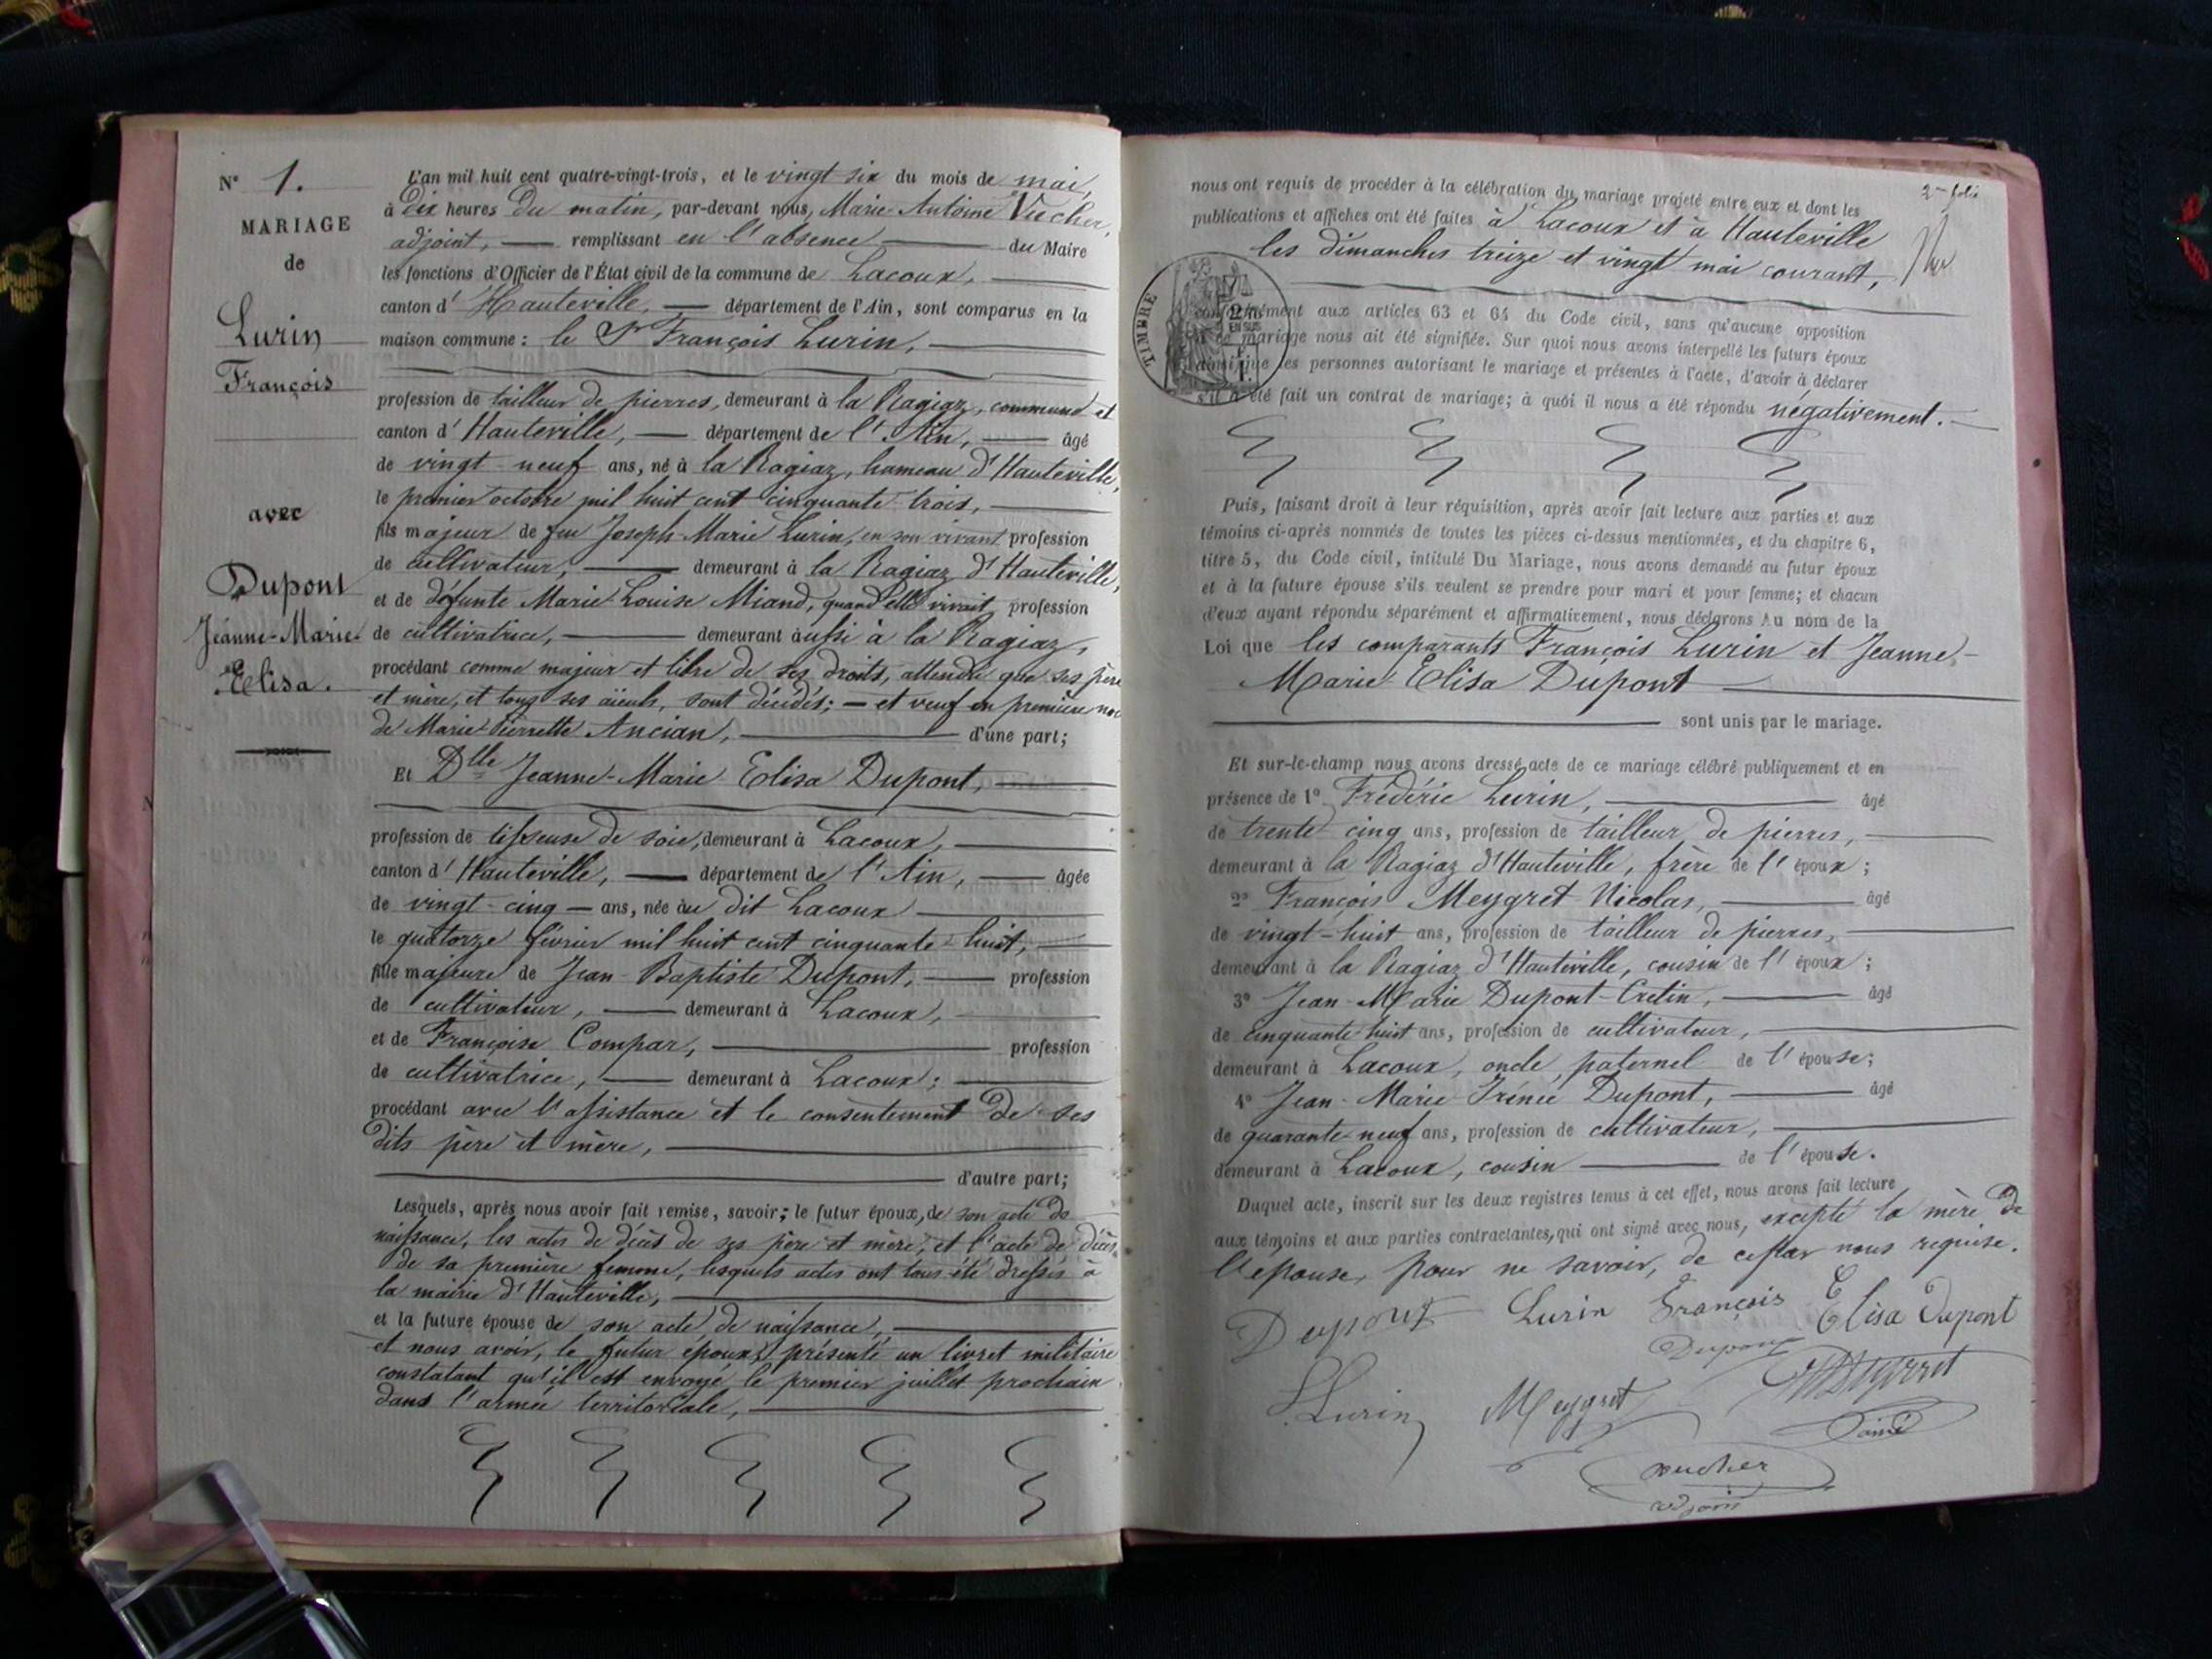 N° 1.
MARIAGE
de
Lurin
François
avec
Dupont
Jeanne-Marie-
Elisa.
L'an mil huit cent quatre-vingt-trois, et le vingt six du mois de mai,
à Dix heures Du matin, par-devant nous, Marie-Antoine Vucher,
adjoint, remplissant en l'absence du Maire
les fonctions d'Officier de l'État civil de la commune de Lacoux,
canton d' Hauteville, département de l'Ain, sont comparus en la
maison commune : le Sr François Lurin,
profession de tailleur de pierres, demeurant à la Ragiaz, commune et
canton d' Hauteville, département de l'Ain, âgé
de vingt-neuf ans, né à la Ragiaz, hameau d'Hauteville,
le premier octobre mil huit cent cinquante trois,
fils majeur de feu Joseph-Marie Lurin, en son vivant profession
de cultivateur, demeurant à la Ragiaz d'Hauteville,
et de défunte Marie-Louise Miand, quand elle vivait, profession
de cultivatrice, demeurant aussi à la Ragiaz,
procédant comme majeur et libre de ses droits, attendu que ses père
et mère, et tous ses aïeuls, sont décédés ; — et veuf en première
de Marie-Pierrette Ancian, d'une part;
Et Dlle Jeanne-Marie Elisa Dupont,
profession de tisseuse de soie, demeurant à Lacoux,
canton d' Hauteville, département de l'Ain, âgée
de vingt-cinq — ans, née au dit Lacoux
le quatorze février mil huit cent cinquante-huit,
fille majeure de Jean-Baptiste Dupont, profession
de cultivateur, demeurant à Lacoux,
et de Françoise Compar, profession
de cultivatrice, demeurant à Lacoux ;
procédant avec l'assistance et le consentement de ses
dits père et mère,
d'autre part;
Lesquels, après nous avoir fait remise, savoir ; le futur époux, de son acte de
naissance, les actes de décès de ses père et mère, et l'acte de décès
de sa première femme, lesquels actes ont tous été dressés à
la mairie d'Hauteville,
et la future épouse de son acte de naissance,
et nous avoir, le futur époux, présenté un livret militaire
constatant qu'il est envoyé le premier juillet prochain
dans l'armée territoriale,
2me folio
nous ont requis de procéder à la célébration du mariage projeté entre eux et dont les
publications et affiches ont été faites à Lacoux et à Hauteville
les dimanches treize et vingt mai courant,
TIMBRE
2/10
EN SUS
conformément aux articles 63 et 64 du Code civil, sans qu'aucune opposition
à ce mariage nous ait été signifiée. Sur quoi nous avons interpellé les futurs époux
ainsi que les personnes autorisant le mariage et présentes à l'acte, d'avoir à déclarer
s'il a été fait un contrat de mariage; à quoi il nous a été répondu négativement.
Puis, faisant droit à leur réquisition, après avoir fait lecture aux parties et aux
témoins ci-après nommés de toutes les pièces ci-dessus mentionnées, et du chapitre 6,
titre 5, du Code civil, intitulé Du Mariage, nous avons demandé au futur époux
et à la future épouse s'ils veulent se prendre pour mari et pour femme; et chacun
d'eux ayant répondu séparément et affirmativement, nous déclarons Au nom de la
Loi que les comparants François Lurin et Jeanne-
Marie Elisa Dupont
sont unis par le mariage.
Et sur-le-champ nous avons dressé acte de ce mariage célébré publiquement et en
présence de 1° Frédéric Lurin, âgé
de trente cinq ans, profession de tailleur de pierres,
demeurant à la Ragiaz d'Hauteville, frère de l'époux ;
2° François Meygret Nicolas, âgé
de vingt-huit ans, profession de tailleur de pierres,
demeurant à la Ragiaz d'Hauteville, cousin de l'époux ;
3° Jean-Marie Dupont-Cretin, âgé
de cinquante-huit ans, profession de cultivateur,
demeurant à Lacoux, oncle paternel de l'épouse ;
4° Jean-Marie Irénée Dupont, âgé
de quarante-neuf ans, profession de cultivateur,
demeurant à Lacoux, cousin de l'épouse.
Duquel acte, inscrit sur les deux registres tenus à cet effet, nous avons fait lecture
aux témoins et aux parties contractantes, qui ont signé avec nous, excepté la mère de
l'épouse, pour ne savoir, de ce par nous requise.
Dupont Lurin François Elisa Dupont
Dupont
Lurin Meygret
vucher
adjoint